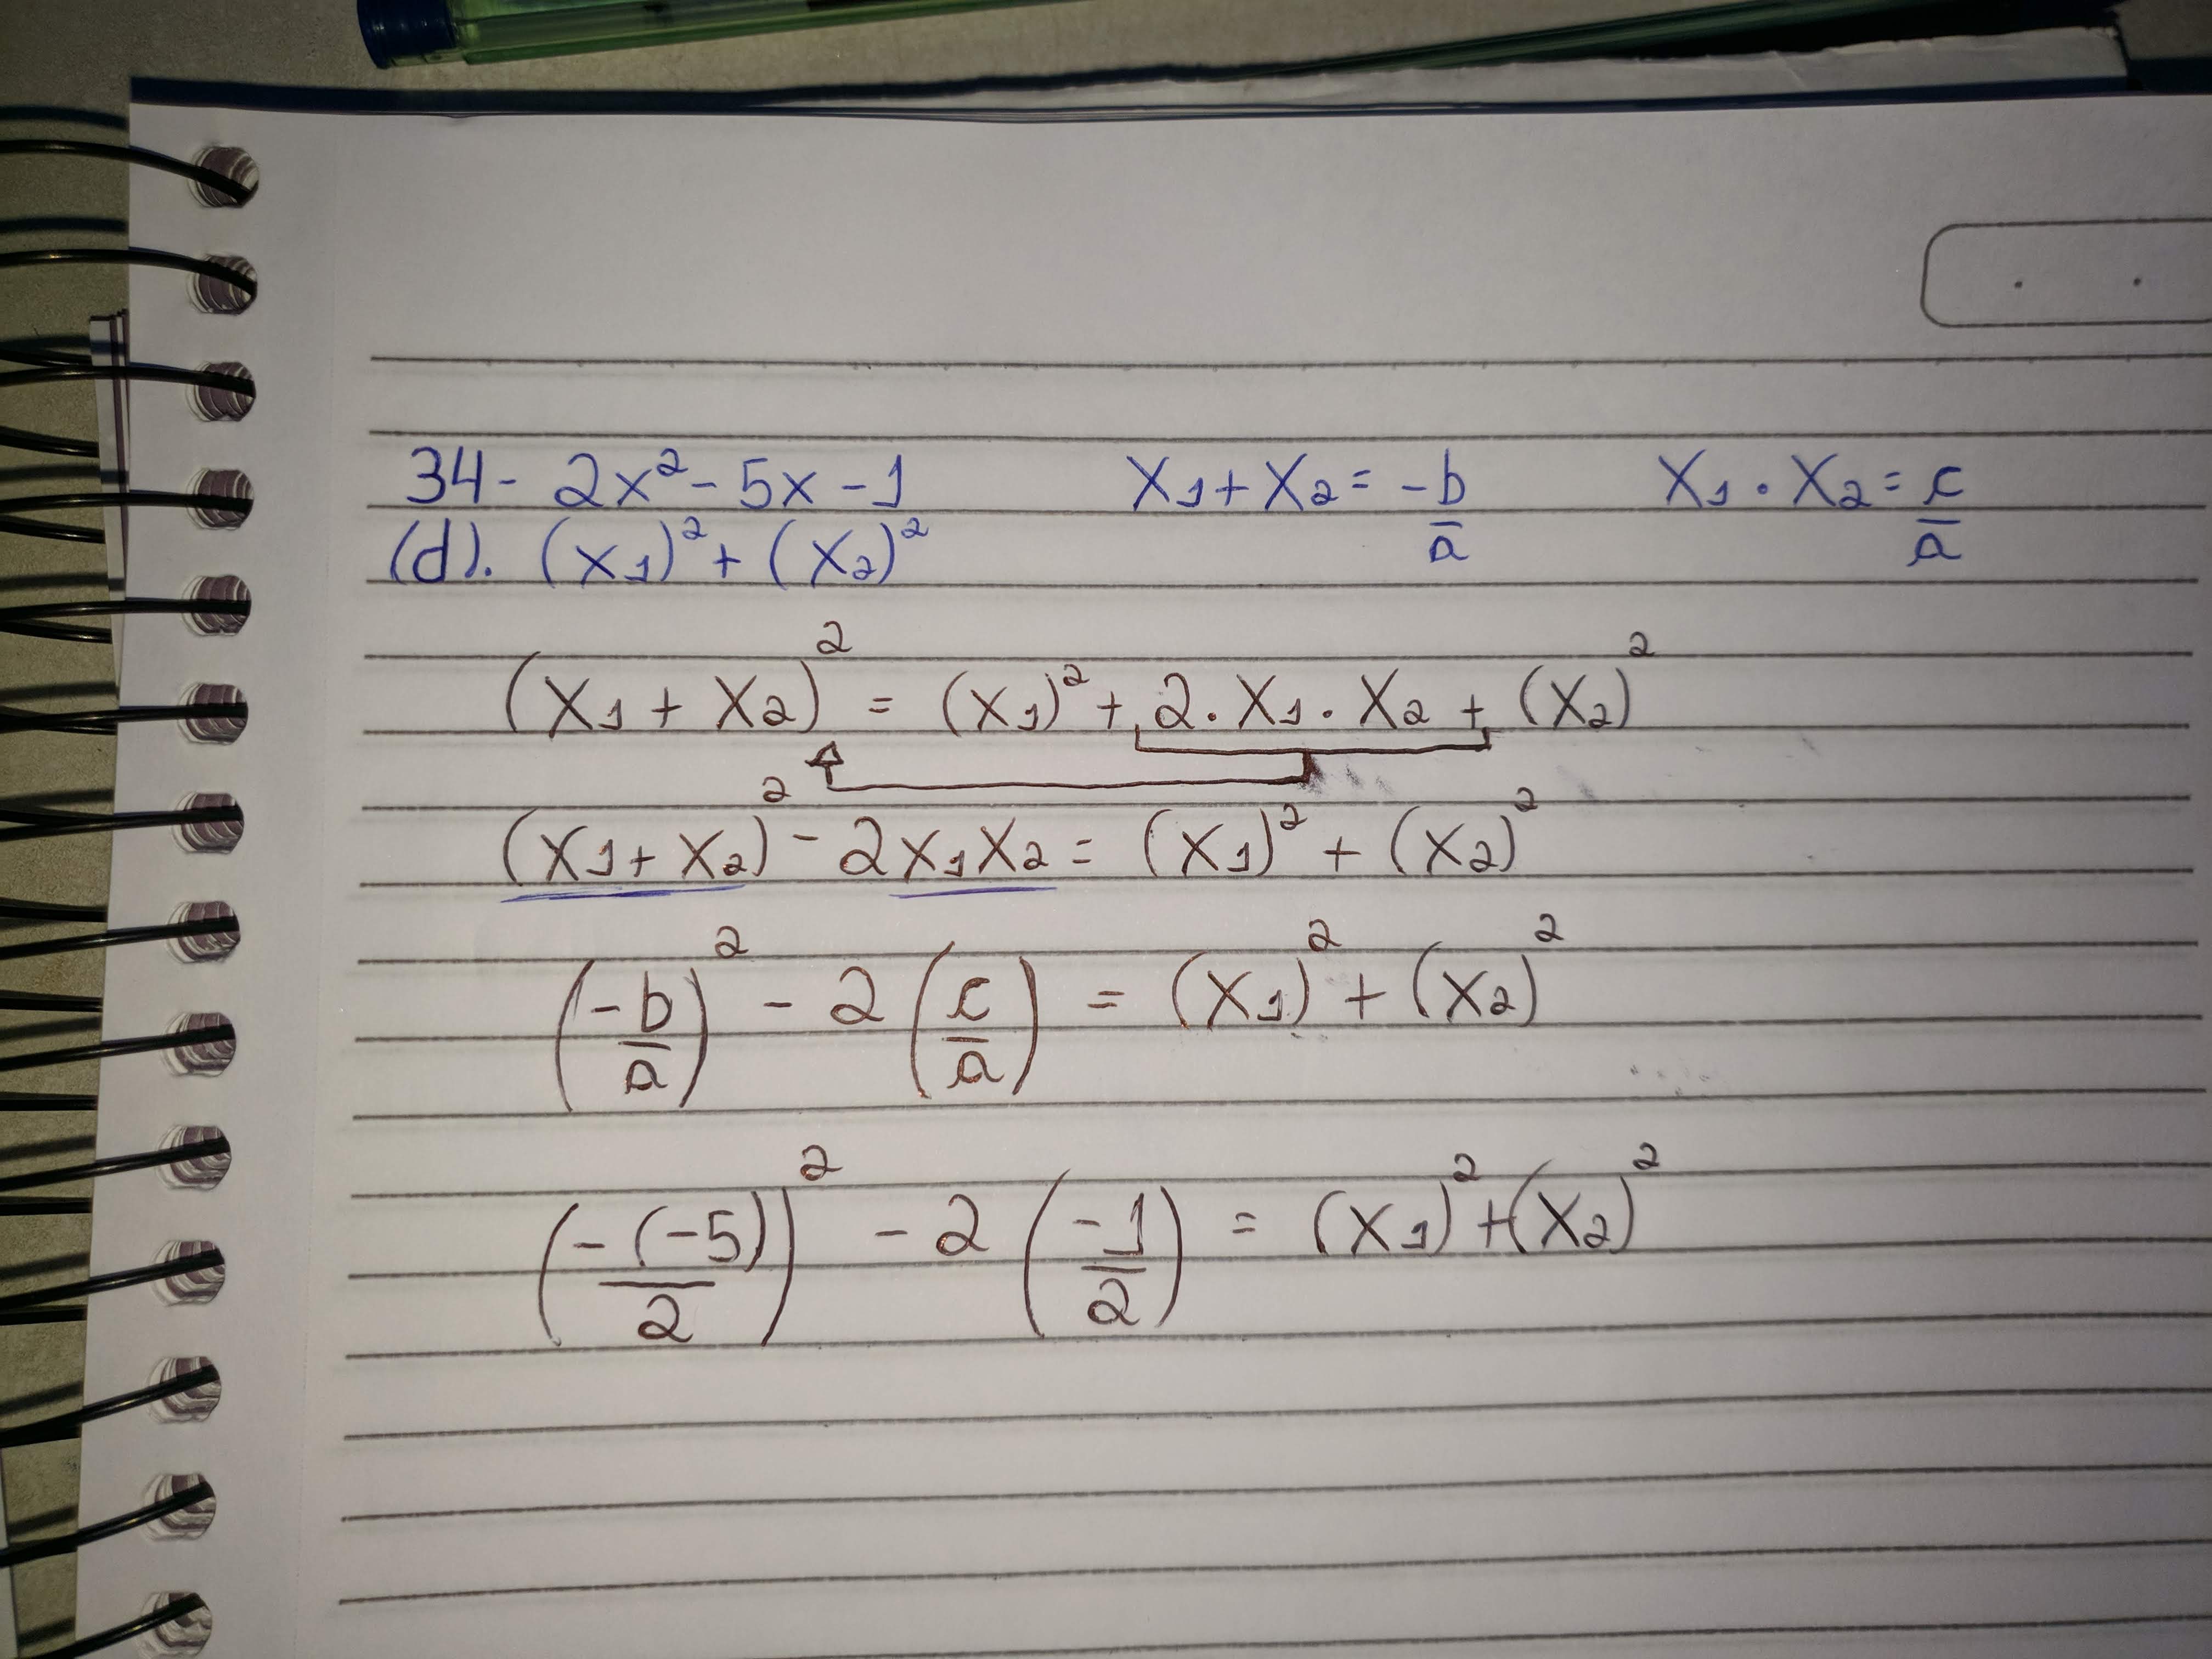 34- 2x²-5x-1 X₁+X₂= -b/a X₁·X₂= c/a
(d). (x₁)²+(x₂)²
(X₁+X₂)² = (x₁)²+2·X₁·X₂+(X₂)²
(X₁+X₂)²-2x₁X₂= (X₁)²+(X₂)²
(-b/a)² - 2(c/a) = (X₁)²+(X₂)²
(-(-5)/2)² - 2(-1/2) = (X₁)²+(X₂)²